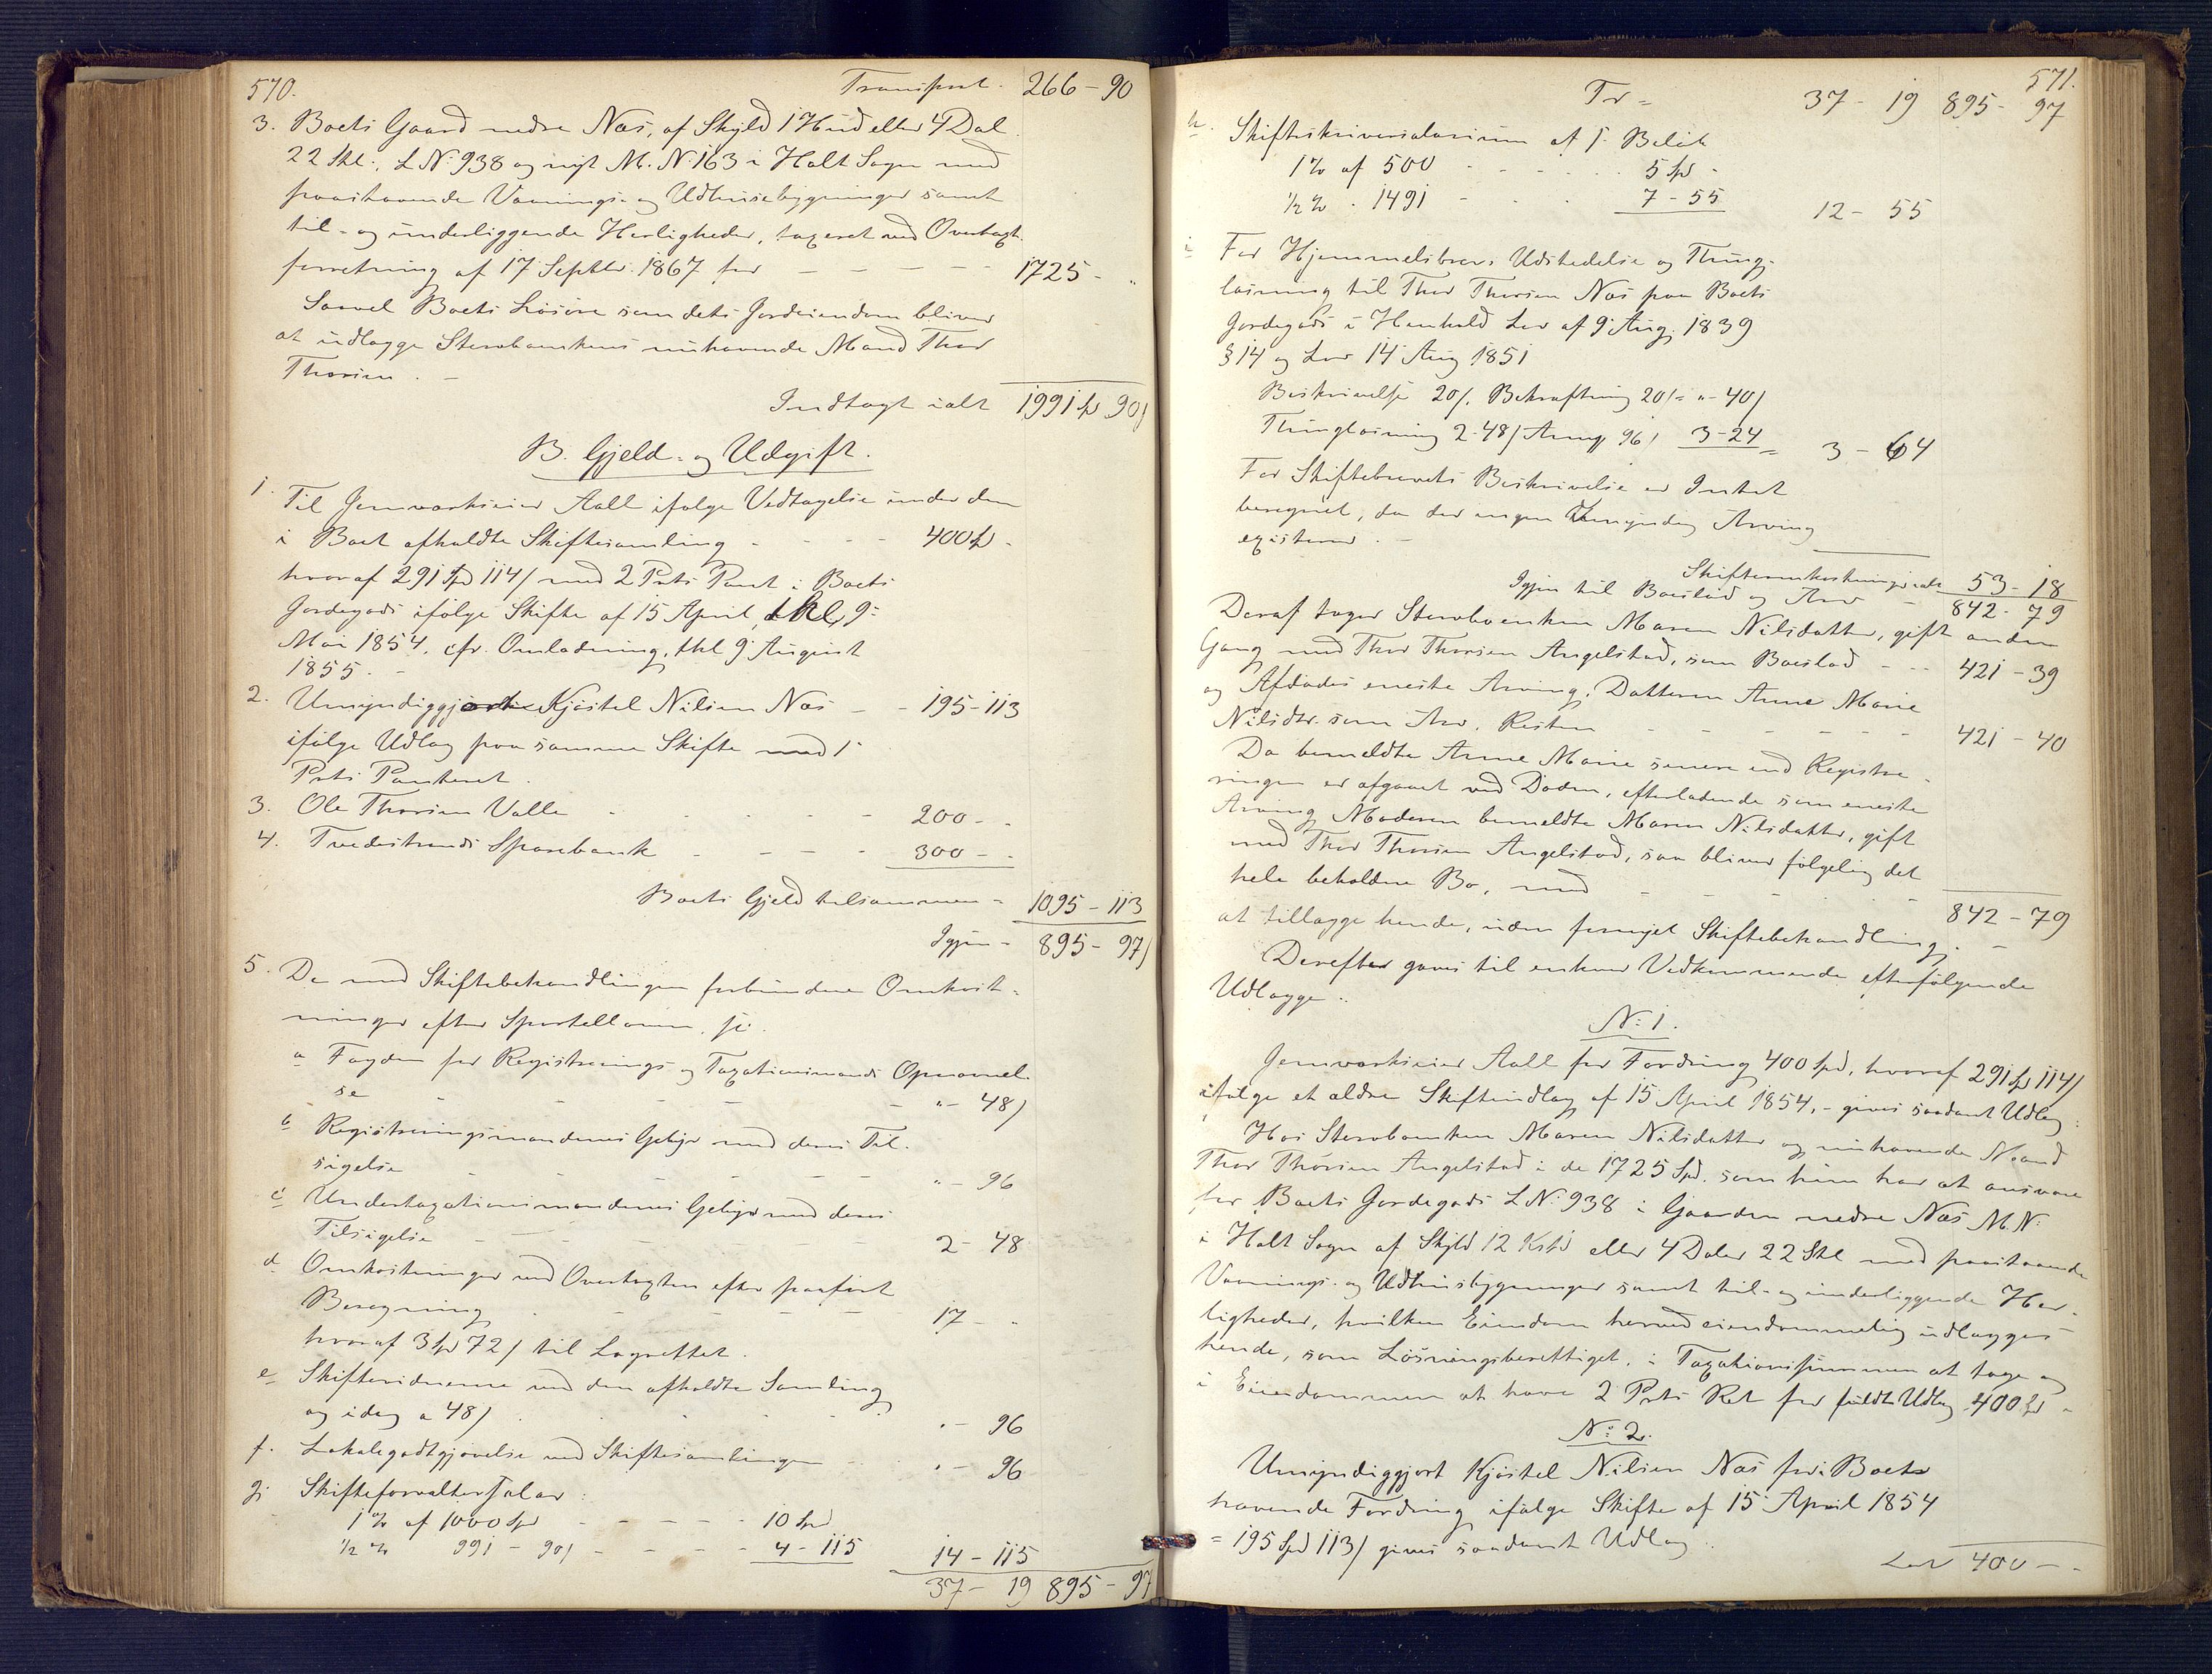 570.
Transport. 266 - 90
3. Boets Gaard nedre Næs, af Skyld 1 Hud eller 4 Dal.
22 Skl:, L N: 938 og nyt M. N: 163 i Holt Sogn med
paastaaende Vaanings- og Udhusebygninger samt
til- og underliggende Herligheder, taxeret ved Overtaxt-
forretning af 17 Septbr. 1867 for - - - - - 1725 - "
Saavel Boets Løsøre som dets Jordeiendom bliver
at udlægge Stervboenkens nuhavende Mand Thor
Thorsen. -
Indtægt ialt 1991 Sp 90/
B. Gjeld- og Udgift.
1. Til Jernværkseier Aall ifølge Vedtagelse under den
i Boet afholdte Skiftesamling - - - - 400 Sp -
hvoraf 291 Spd 114/ med 2 Prts Pant i Boets
Jordegods ifølge Skifte af 15 April, thl. 9:
Mai 1854, cfr. Omladning, thl 9 August
1855. -
2. Umyndiggjorte Kjøstel Nilsen Næs - - 195 - 113
ifølge Udlæg paa samme Skifte med 1:
Prts Panteret.
3. Ole Thorsen Valle - - - - 200 - -
4. Tvedestrands Sparebank - - - - 300 - -
Boets Gjeld tilsammen - 1095 - 113
Igjen - 895 - 97/
5. De med Skiftebehandlingen forbundne Omkost-
ninger efter Sportelloven,
a Fogden for Registrerings- og Taxationsmænds Opnævnel-
se - - - - - " - 48/
b Registreringsmændenes Gebyr med deres Til-
sigelse - - - - - " - 96
c Undertaxationsmændenes Gebyr med deres
Tilsigelse - - - - 2 - 48
d Omkostninger ved Overtaxten efter paaført
Beregning - - - - 17 - -
hvoraf 3 Sp 72/ til Lagrettet.
e Skiftevidnerne ved den afholdte Samling
og idag a 48/ - - - - " - 96
f. Lokalegodtgjørelse ved Skiftesamlingen - " - 96
g. Skifteforvaltersalær:
1 % af 1000 Spd - - - - 10 Spd
1/2 % 991 - 90/ - - - - 4 - 115 14 - 115
37 - 19 895 - 97
571.
Tr = 37 - 19 895 - 97
h. Skifteskriversalarium af f. Beløb
1 % af 500 - - - - - 5 Spd -
1/2 % . 1491 - - - 7 - 55 12 - 55
i For Hjemmelsbrevs Udstedelse og Thing-
læsning til Thor Thorsen Næs paa Boets
Jordegods i Henhold Lov af 9 Aug. 1839
§ 14 og Lov 14 Aug 1851
Beskrivelse 20/. Bekræftning 20/ = " - 40/
Thinglæsning 2-48/ 96/ 3 - 24 = 3 - 64
For Skiftebrevets Beskrivelse er Intet
beregnet, da der ingen Umyndig Arving
existerer. -
Skifteomkostninger ialt 53 - 18
Igjen til Boeslod og Arv - 842 - 79
Deraf tager Stervboenken Maren Nilsdatter, gift anden
Gang med Thor Thorsen Angelstad, som Boeslod - - 421 - 39
og Afdødes eneste Arving, Datteren Anne Marie
Nilsdtr. som Arv, Resten - - - - - 421 - 40
Da bemeldte Anne Marie senere end Registre-
ringen er afgaaet ved Døden, efterladende som eneste
Arving Moderen bemeldte Maren Nilsdatter, gift
med Thor Thorsen Angelstad, saa bliver følgelig det
hele beholdne Bo, med - - - - 842 - 79
at tillægge hende, uden fornyet Skiftebehandling. -
Derefter gaves til enhver Vedkommende efterfølgende
Udlægge:
N: 1.
Jernværkseier Aall for Fordring 400 Spd, hvoraf 291 Sp 114/
ifølge et ældre Skifteudlæg af 15 April 1854, - gives saadant Udlæg:
Hos Stervboenken Maren Nilsdatter og nuhavende Mand
Thor Thorsen Angelstad i de 1725 Spd. som hun har at ansvare
for Boets Jordegods L N: 938 i Gaarden nedre Næs M. N:
i Holt Sogn af Skyld 12 eller 4 Daler 22 Skl med paastaaende
Vaanings- og Udhusbygninger samt til- og underliggende Her-
ligheder, hvilken Eiendom herved eiendommelig udlægges
hende, som Løsningsberettiget, i Taxationssummen at tage og
i Eiendommen at have 2 Prts Ret for fuldt Udlæg 400 Sp -
N: 2.
Umyndiggjort Kjøstel Nilsen Næs for i Boet
havende Fordring ifølge Skifte af 15 April 1854
= 195 Spd 113/ gives saadant Udlæg:
Lat 400 - -